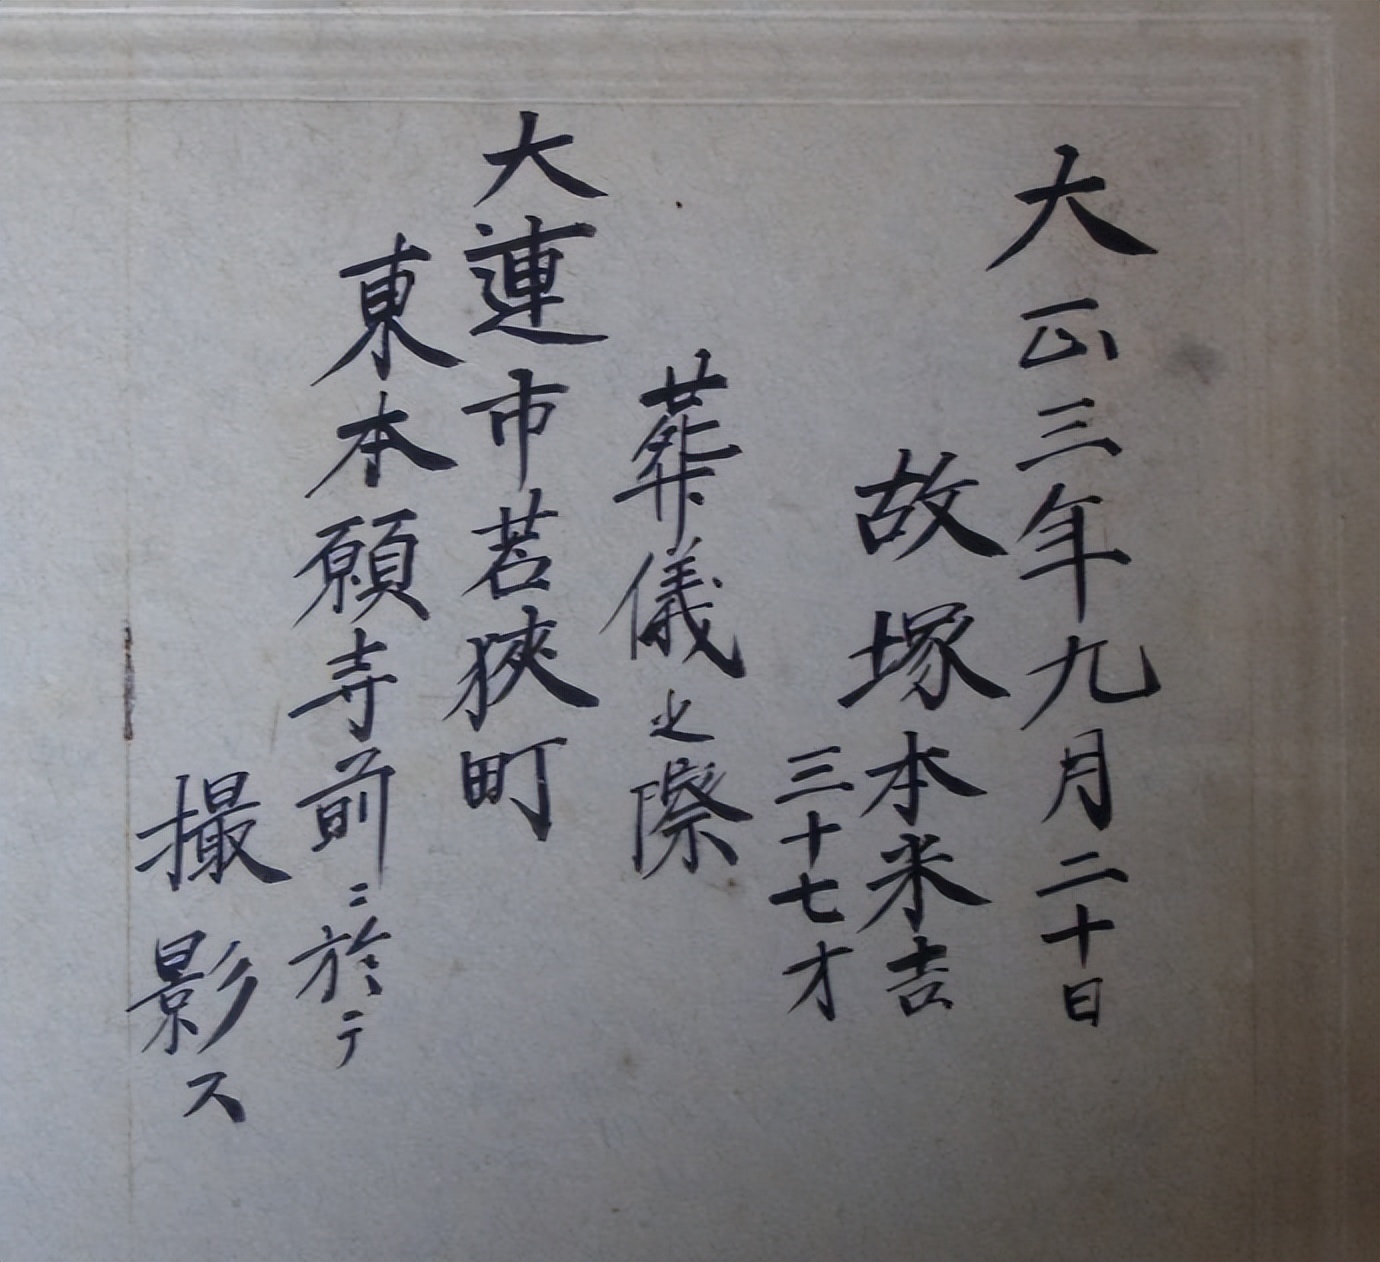 大正三年九月二十日
故塚本米吉
三十七才
葬儀之際
大連市若狹町
東本願寺前ニ於テ
撮影ス